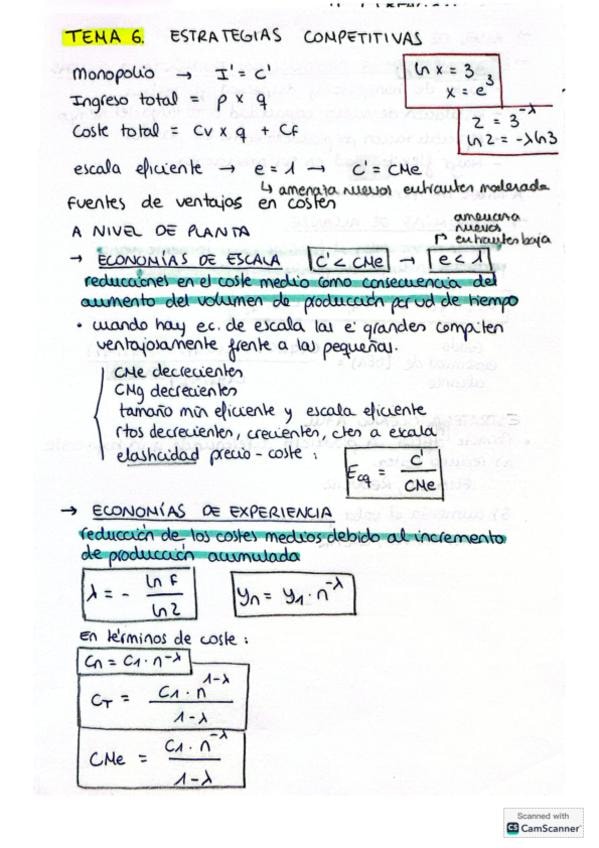 TEMA 6. ESTRATEGIAS COMPETITIVAS
Monopolio → I' = C'
Ingreso total = p x q
Coste total = Cv x q + CF
ln x = 3
x = e^3
2 = 3^-λ
ln 2 = -λ ln 3
escala eficiente → e = 1 → C' = CMe
↳ amenaza nuevos entrantes moderada
fuentes de ventajas en costes
A NIVEL DE PLANTA
→ ECONOMÍAS DE ESCALA C' < CMe → e < 1
amenaza nuevos entrantes baja
reducciones en el coste medio como consecuencia del
aumento del volumen de producción por ud de tiempo
• cuando hay ec. de escala las e' grandes compiten
ventajosamente frente a las pequeñas.
CMe decrecientes
CMg decrecientes
tamaño min eficiente y escala eficiente
rtos decrecientes, crecientes, ctes a escala
elasticidad precio - coste : Ecq = C' / CMe
→ ECONOMÍAS DE EXPERIENCIA
reducción de los costes medios debido al incremento
de producción acumulada
λ = - ln F / ln 2
yn = y1 · n^-λ
En términos de coste :
Cn = C1 · n^-λ
CT = C1 · n^1-λ / 1-λ
CMe = C1 · n^-λ / 1-λ
Scanned with
CS CamScanner